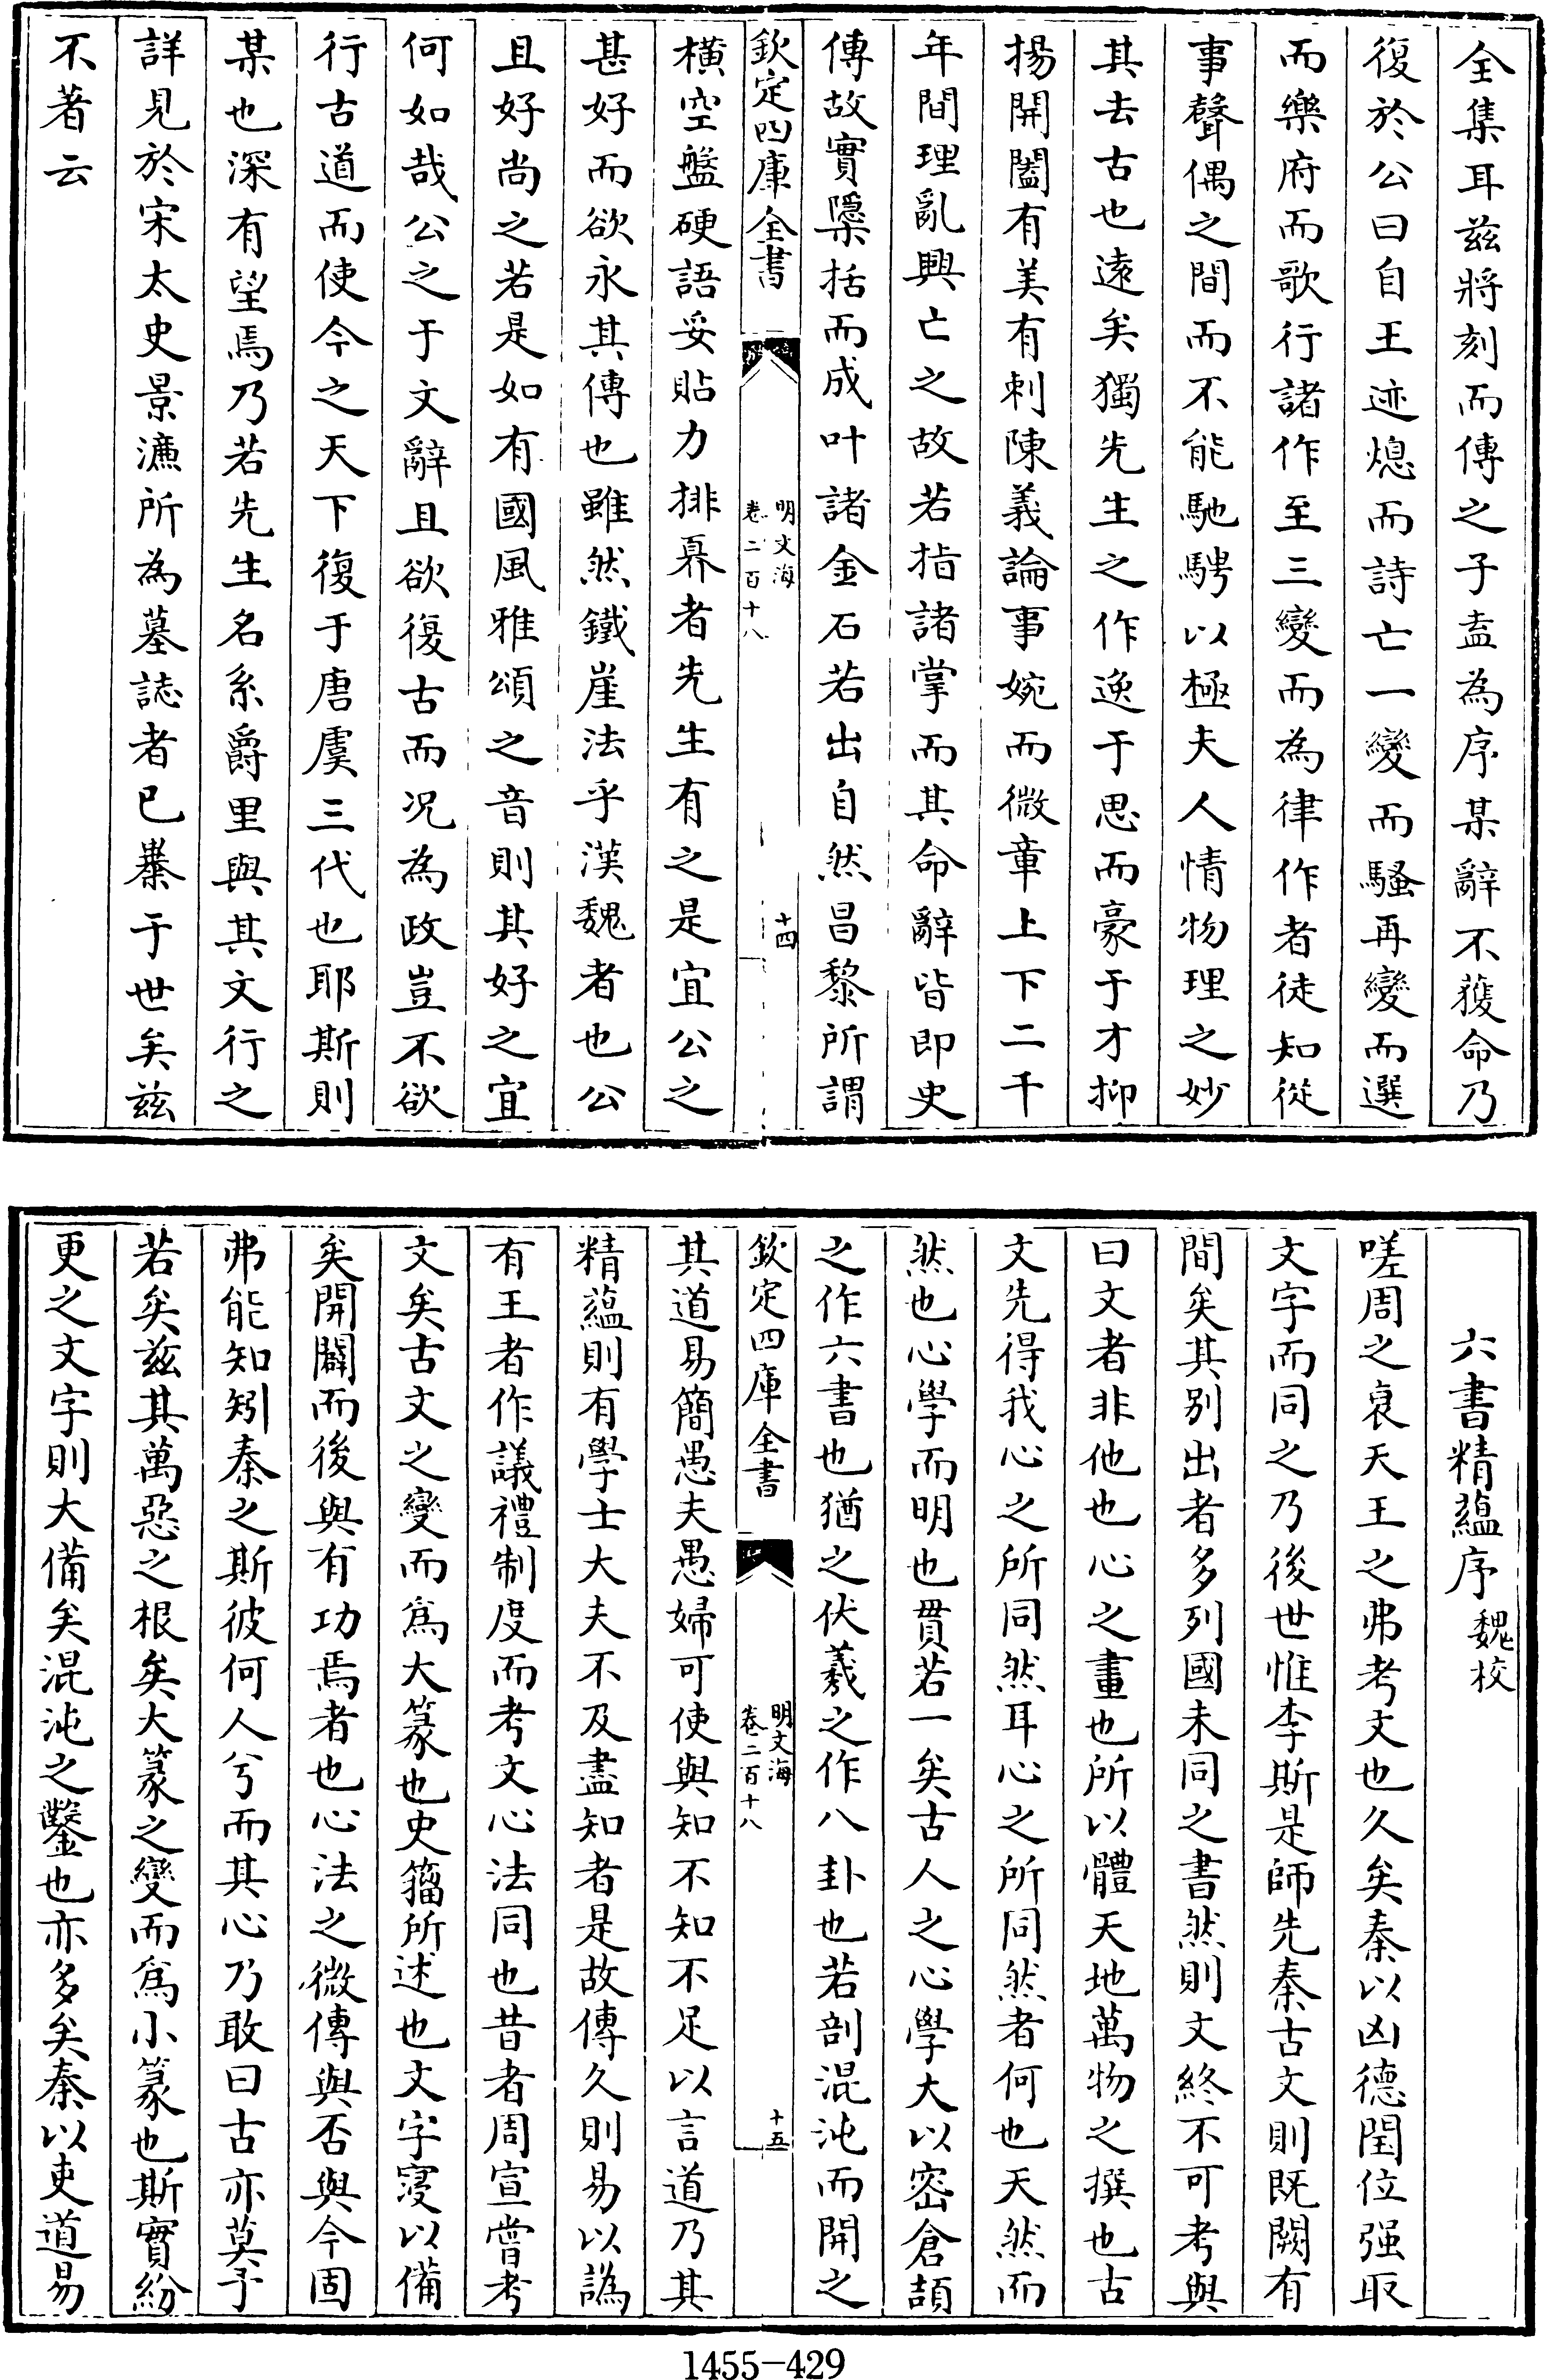 全集耳茲將刻而傳之子盍為序某辭不獲命乃
復於公曰自王迹熄而詩亡一變而騷再變而選
而樂府而歌行諸作至三變而為律作者徒知從
事聲偶之間而不能馳騁以極夫人情物理之妙
其去古也遠矣獨先生之作逸于思而豪于才抑
揚開闔有美有刺陳義論事婉而微章上下二千
年間理亂興亡之故若指諸掌而其命辭皆即史
傳故實檃括而成叶諸金石若出自然昌黎所謂
欽定四庫全書
明文海
卷二百十八
十四
橫空盤硬語妥貼力排奡者先生有之是宜公之
甚好而欲永其傳也雖然鐵崖法乎漢魏者也公
且好尚之若是如有國風雅頌之音則其好之宜
何如哉公之于文辭且欲復古而况為政豈不欲
行古道而使今之天下復于唐虞三代也耶斯則
某也深有望焉乃若先生名系爵里與其文行之
詳見於宋太史景濂所為墓誌者已橤于世矣茲
不著云
六書精蘊序 魏校
嗟周之衰天王之弗考文也久矣秦以凶德閏位强取
文字而同之乃後世惟李斯是師先秦古文則既闕有
間矣其別出者多列國未同之書然則文終不可考與
曰文者非他也心之畫也所以體天地萬物之撰也古
文先得我心之所同然耳心之所同然者何也天然而
然也心學而明也貫若一矣古人之心學大以密倉頡
之作六書也猶之伏羲之作八卦也若剖混沌而開之
欽定四庫全書
明文海
卷二百十八
十五
其道易簡愚夫愚婦可使與知不知不足以言道乃其
精蘊則有學士大夫不及盡知者是故傳久則易以譌
有王者作議禮制度而考文心法同也昔者周宣嘗考
文矣古文之變而爲大篆也史籀所述也文字寖以備
矣開闢而後與有功焉者也心法之微傳與否與今固
弗能知矧秦之斯彼何人兮而其心乃敢曰古亦莫予
若矣茲其萬惡之根矣大篆之變而爲小篆也斯實紛
更之文字則大備矣混沌之鑿也亦多矣秦以吏道易
1455-429